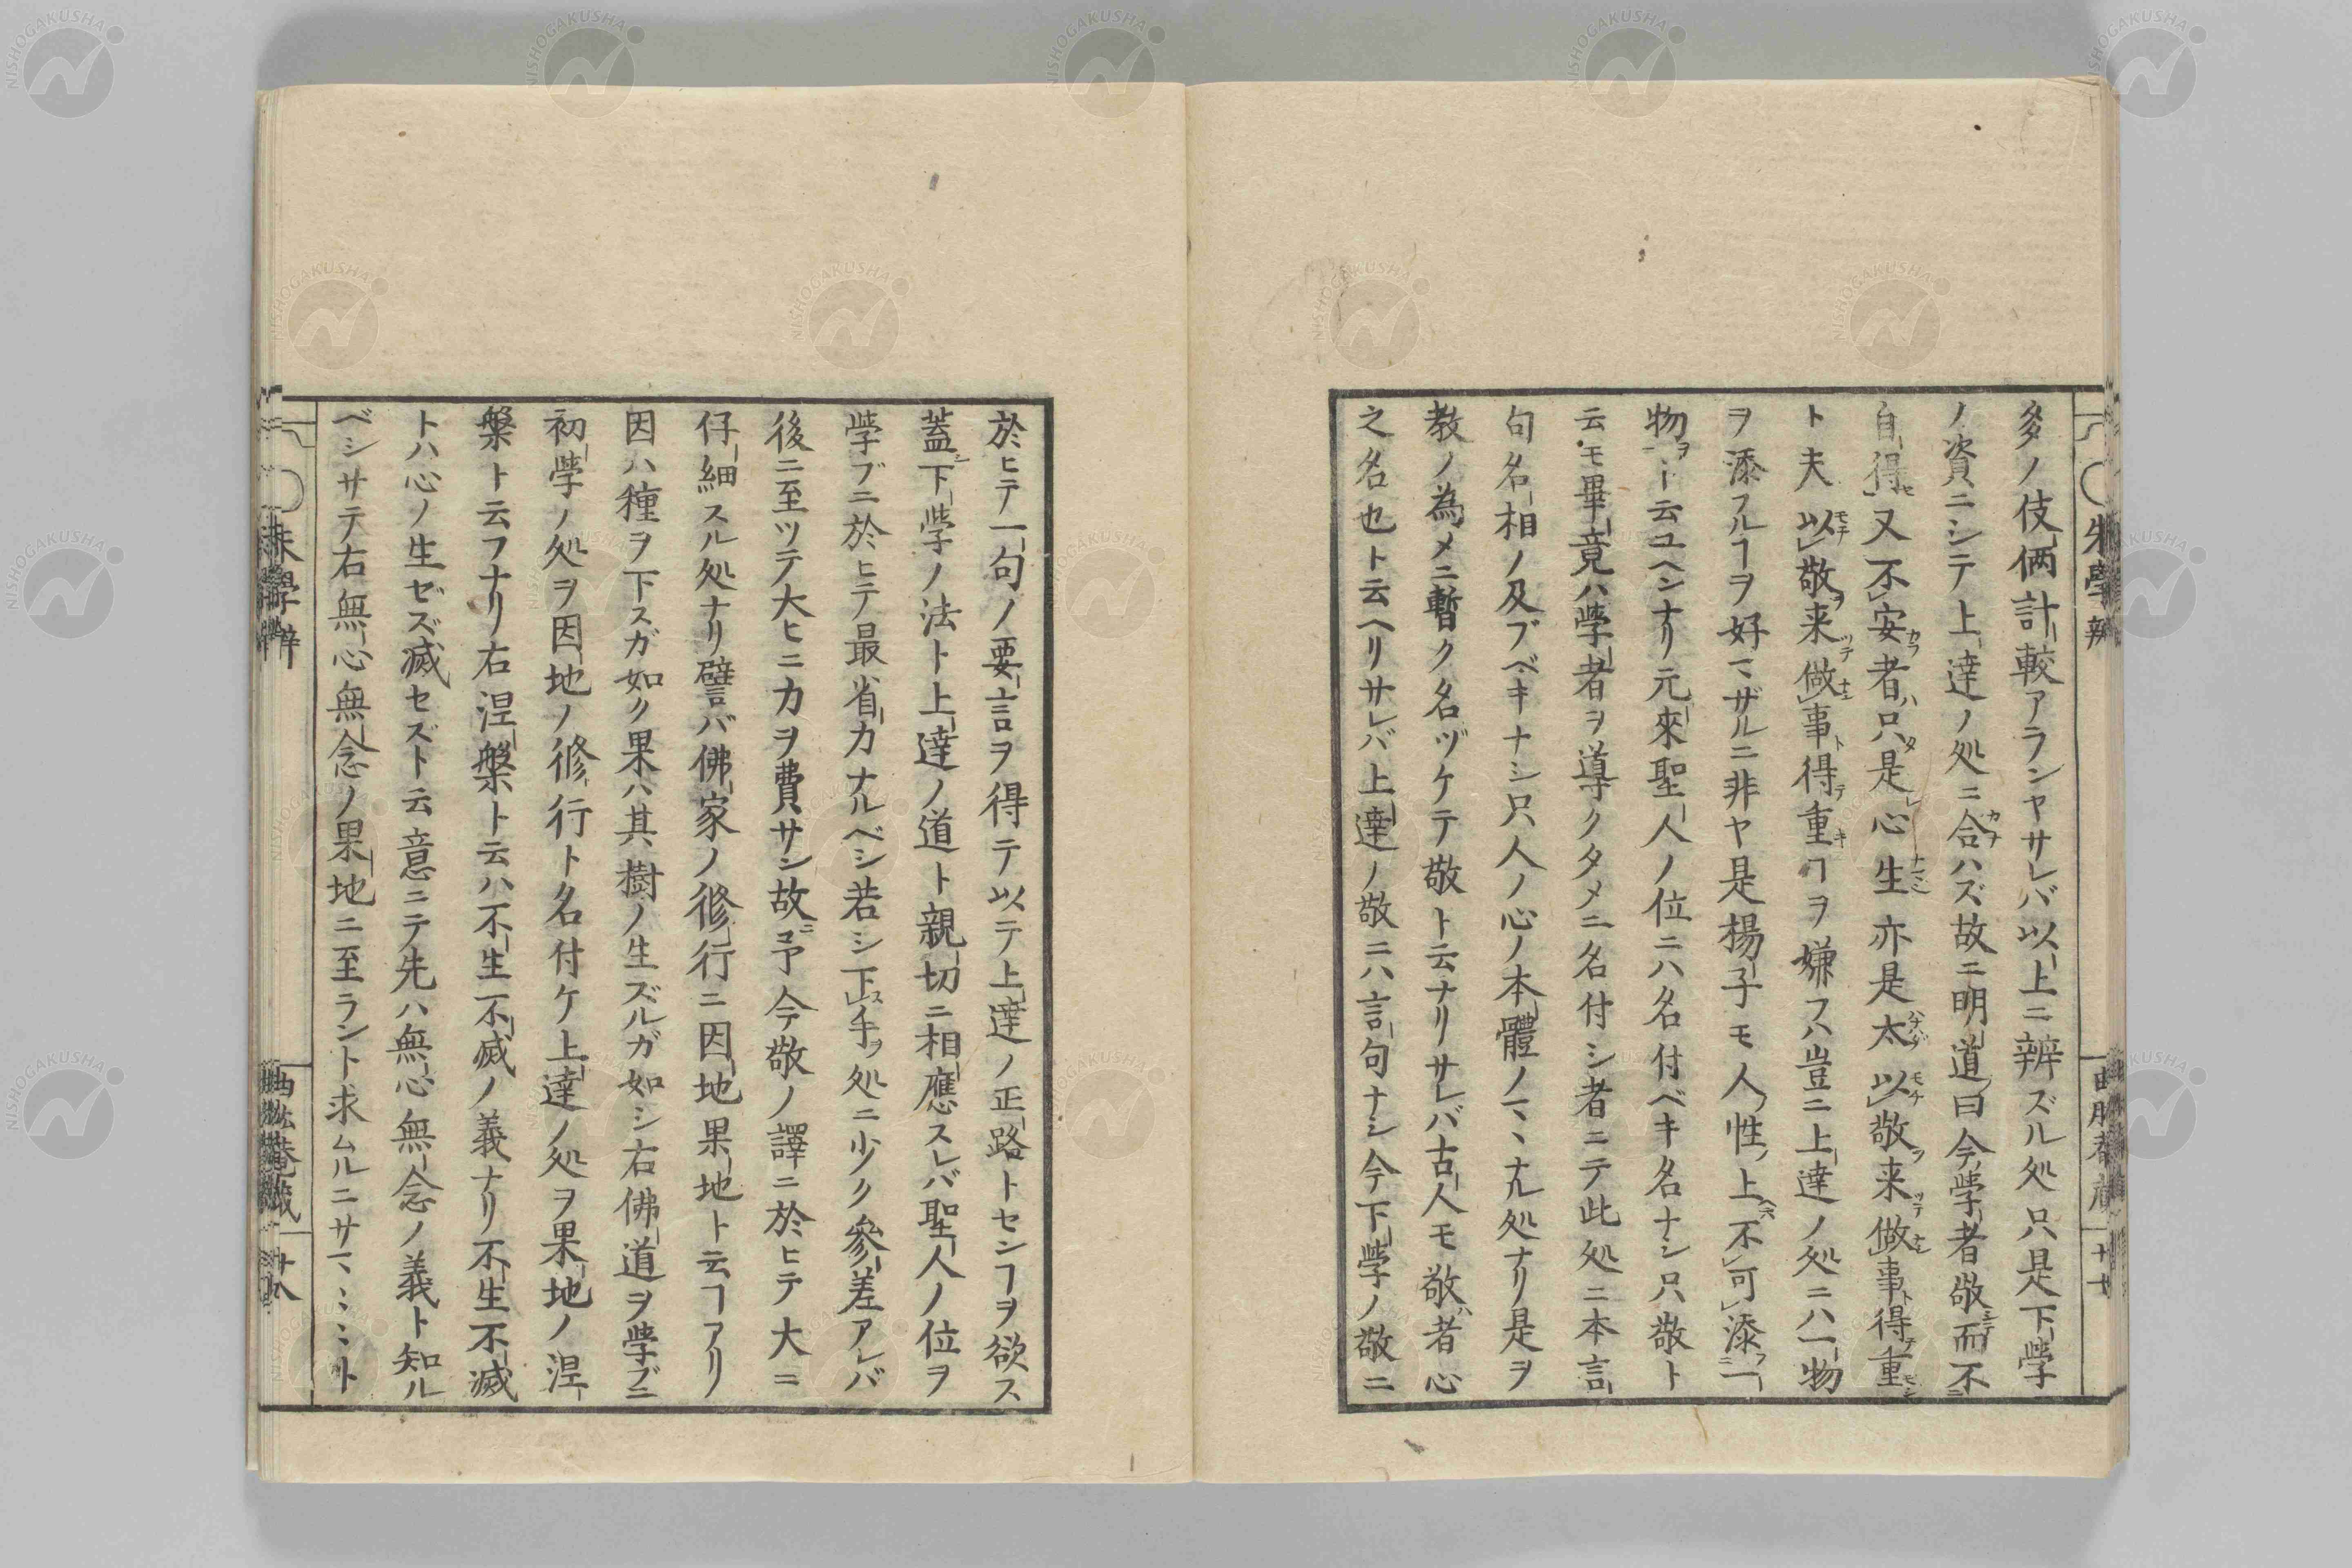 多ノ伎倆計較アランヤサレバ以上ニ辨ズル処只是下學
ノ資ニシテ上達ノ処ニ合ハズ故ニ明道曰今學者敬而不
自得又不安者只是心生亦是太以敬来做事得重
ト夫以敬来做事得重ヿヲ嫌フハ豈ニ上達ノ処ニハ一物
ヲ添フルヿヲ好マザルニ非ヤ是楊子モ人性上不可添一
物ト云ユヘンナリ元來聖人ノ位ニハ名付ベキ名ナシ只敬ト
云モ畢竟ハ學者ヲ導クタメニ名付シ者ニテ此処ニ本言
句名相ノ及ブベキナシ只人ノ心ノ本體ノマヽナル処ナリ是ヲ
教ノ為メニ暫ク名ヅケテ敬ト云ナリサレバ古人モ敬者心
之名也ト云ヘリサレバ上達ノ敬ニハ言句ナシ今下學ノ敬ニ
於ヒテ一句ノ要言ヲ得テ以テ上達ノ正路トセンヿヲ欲ス
蓋下學ノ法ト上達ノ道ト親切ニ相應スレバ聖人ノ位ヲ
學ブニ於ヒテ最省力ナルベシ若シ下手処ニ少ク參差アレバ
後ニ至ツテ大ヒニ力ヲ費サン故予今敬ノ譯ニ於ヒテ大ニ
仔細スル処ナリ譬バ佛家ノ修行ニ因地果地ト云ヿアリ
因ハ種ヲ下スガ如ク果ハ其樹ノ生ズルガ如シ右佛道ヲ學ブニ
初學ノ処ヲ因地ノ修行ト名付ケ上達ノ処ヲ果地ノ涅
槃ト云フナリ右涅槃ト云ハ不生不滅ノ義ナリ不生不滅
トハ心ノ生ゼズ滅セズト云意ニテ先ハ無心無念ノ義ト知ル
ベシサテ右無心無念ノ果地ニ至ラント求ムルニサマミミト
朱學辨
十八
朱學辨
十七
NISHOGAKUSHA